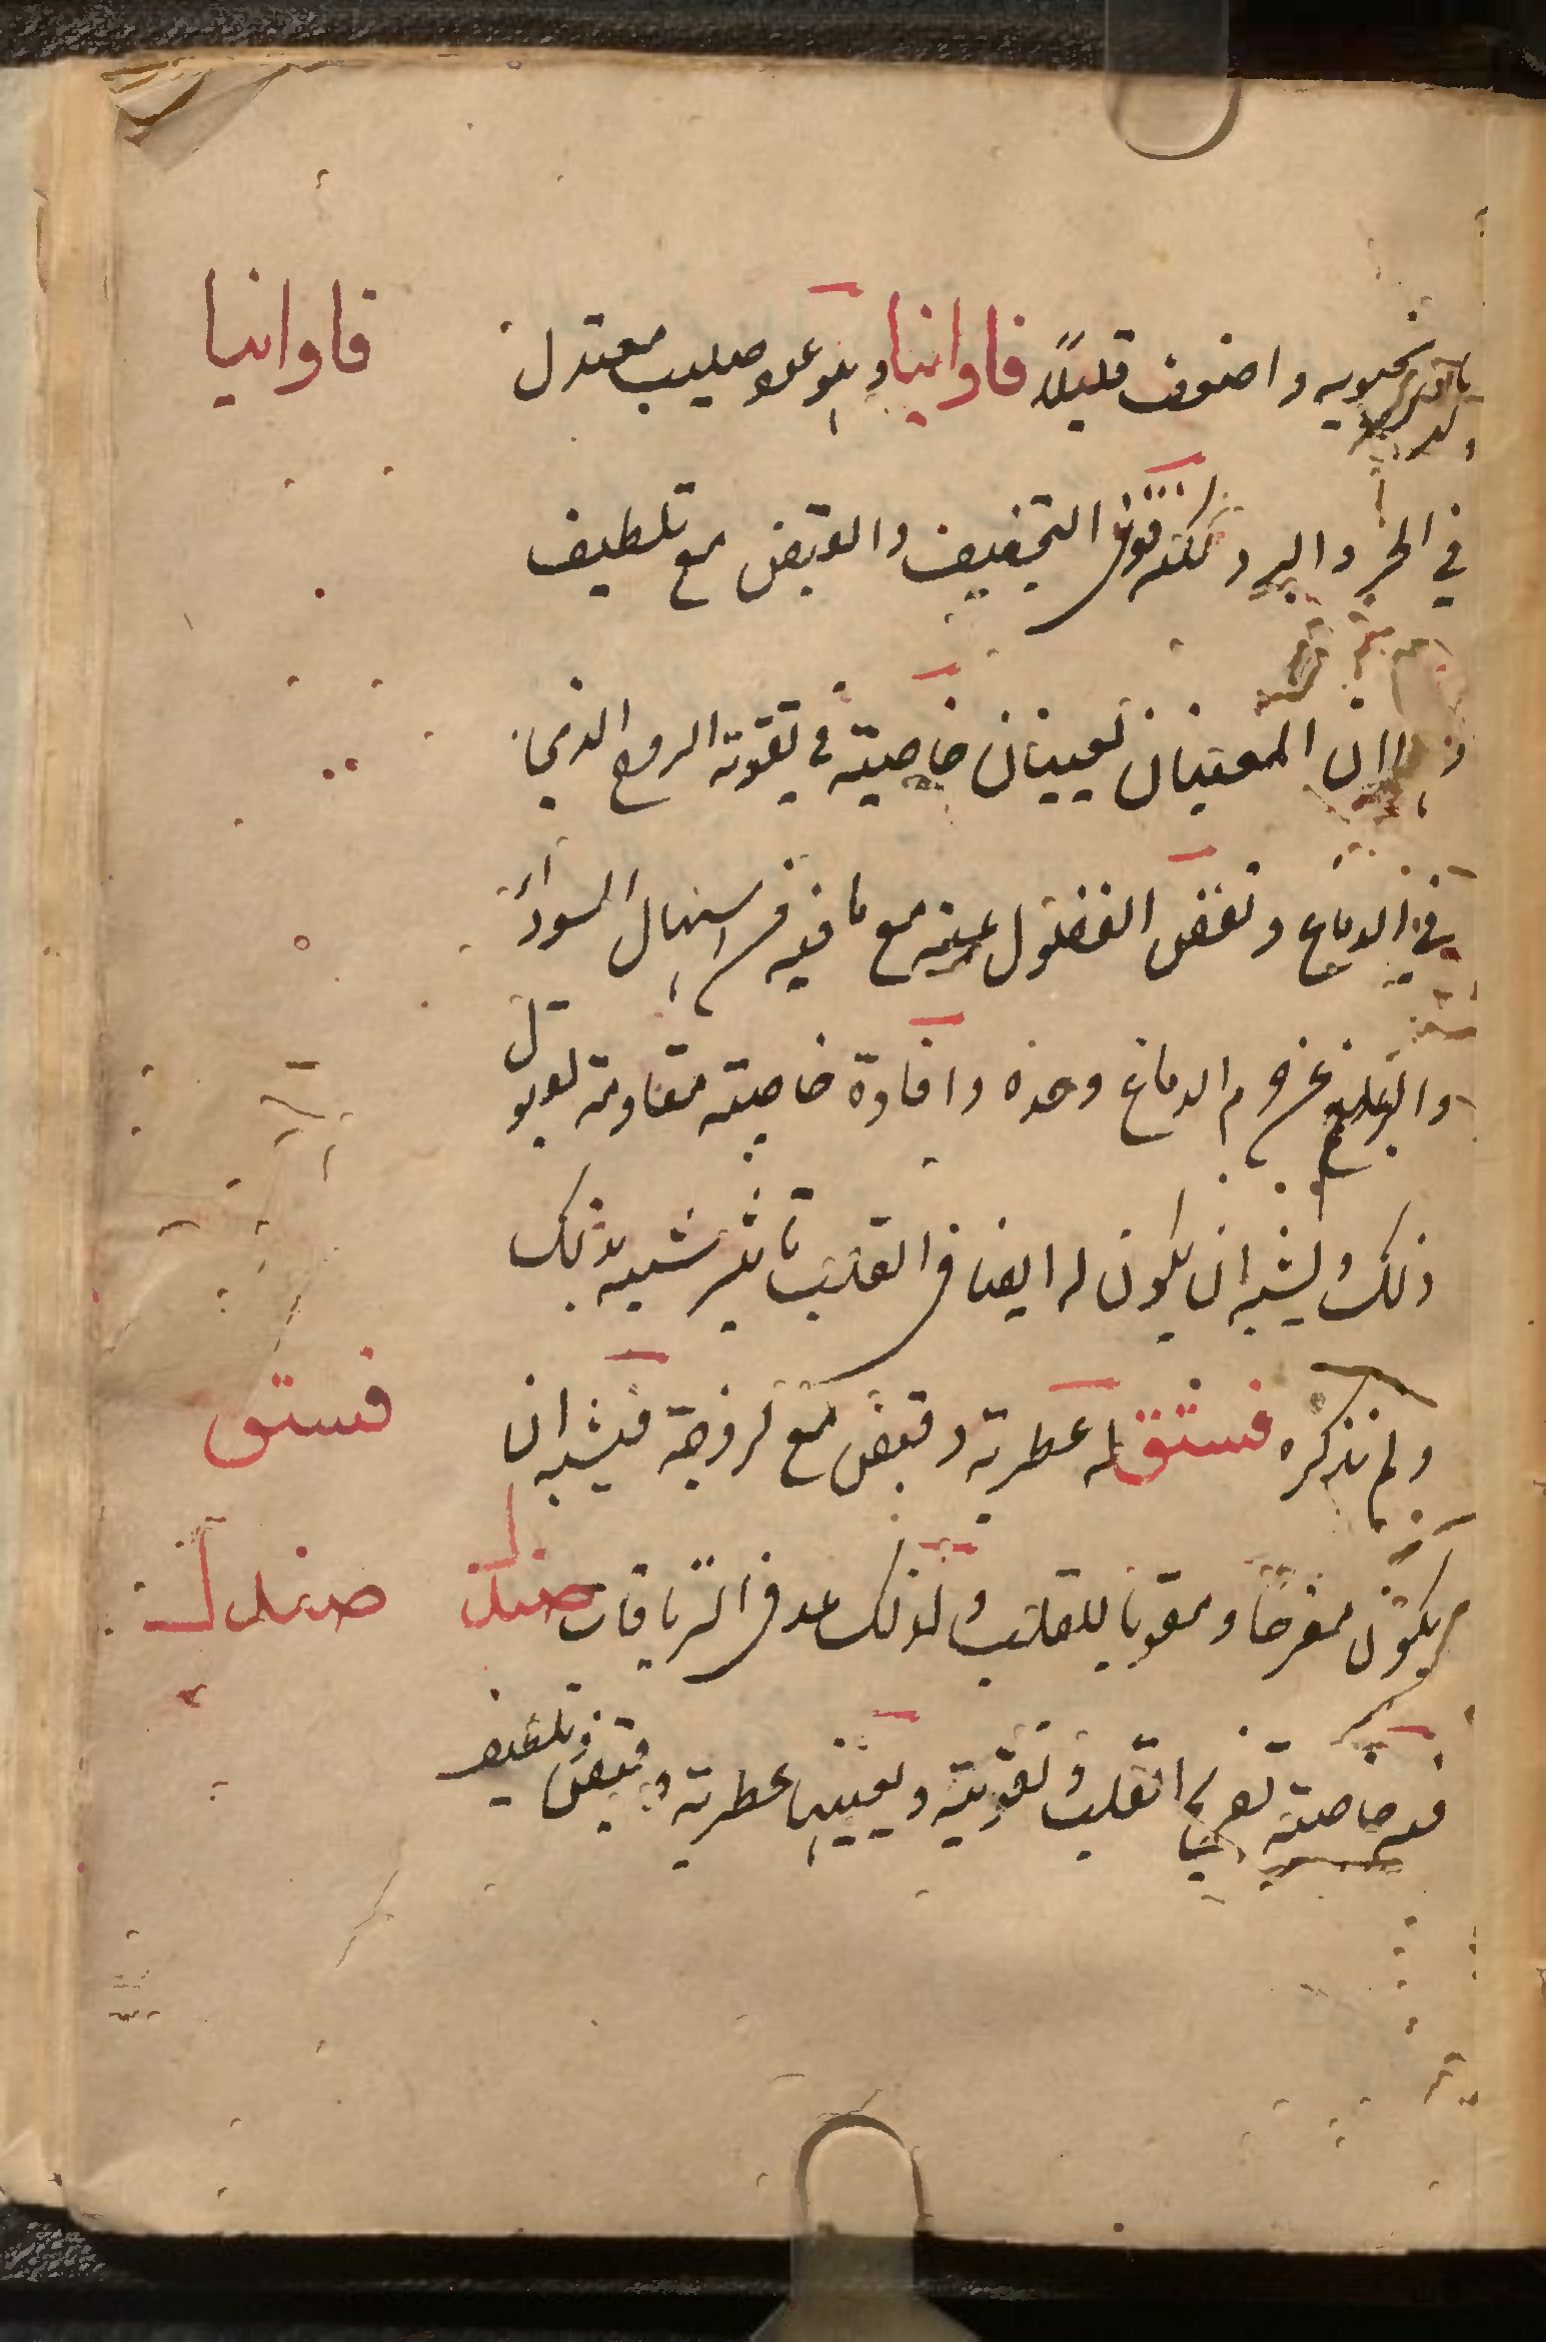 بادرنجبويه واضعف قليلاً فاوانيا وهو عود صليب معتدل
فاوانيا
في الحر والبرد ولكنه قوى التجفيف والقبض مع تلطيف
وهذان المعنيان يعينان خاصيته في تقوية الروح الذي
في الدماغ ونفض الفضول عنه مع ما فيه من اسهال السوداء
والبلغم عن جرم الدماغ وحده وافادة خاصيته مقاومة لهولا
ذلك ويشبه ان يكون له ايضا في القلب تاثير شبيه بذلك
ولم نذكره فستق له عطرية وقبض مع لزوجة فيشبه ان
فستق
يكون مفرحاً ومقويا للقلب ولذلك عد في الترياقات صندل
صندل
فيه خاصية تفريح القلب وتقويته ويعينها عطرية وقبض وتلطيف